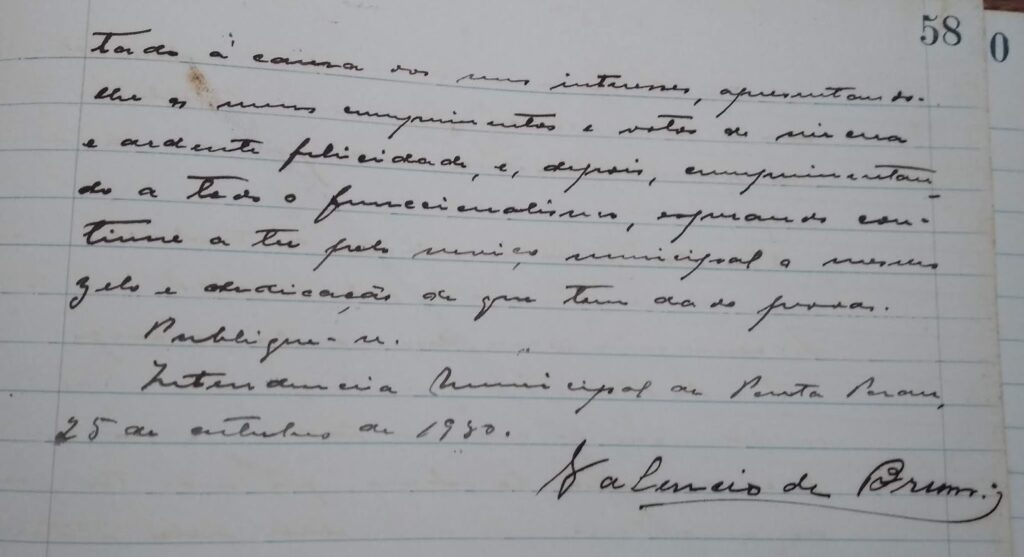 58
0
tado à causa dos seus interesses, apresentando-
lhe os meus cumprimentos e votos de sincera
e ardente felicidade, e, depois, cumprimentan-
do a todo o funccionalismo, esperando con-
tinue a ter pelo serviço municipal o mesmo
zelo e dedicação de que tem dado provas.
Publique-se.
Intendencia Municipal de Ponta Poran,
25 de outubro de 1930.
Valencio de Brum.